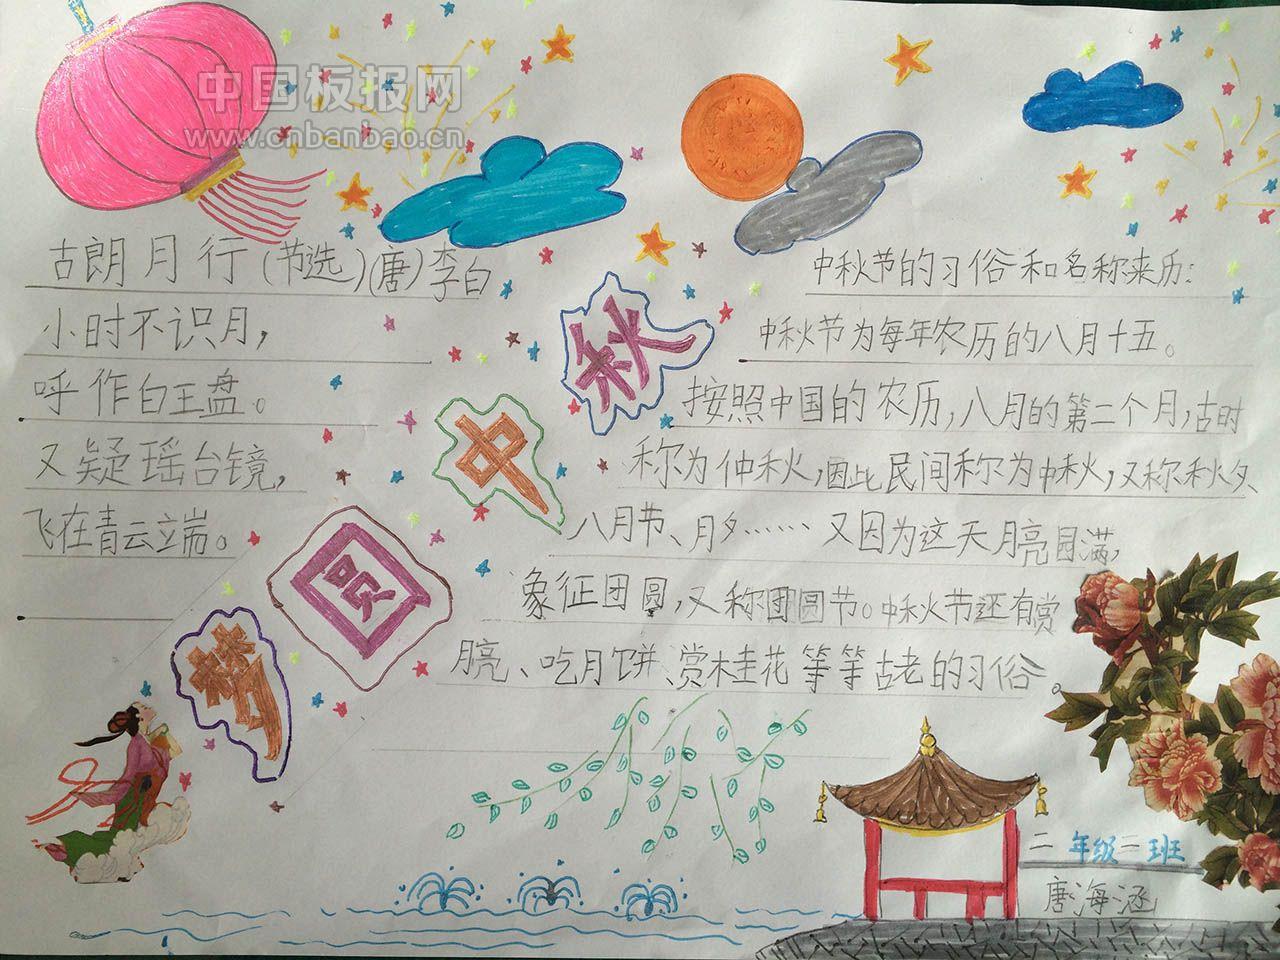 中国板报网
www.cnbanbao.cn
古朗月行(节选)(唐)李白
小时不识月,
呼作白王盘。
又疑瑶台镜,
飞在青云立端。
中秋节的习俗和名称来历:
中秋节为每年农历的八月十五。
按照中国的农历,八月的第二个月,古时
称为仲秋,因此民间称为中秋,又称秋夕、
八月节、月夕……又因为这天月亮圆满,
象征团圆,又称团圆节。中秋节还有赏
月亮、吃月饼、赏桂花等等古老的习俗。
秋
中
圆
梦
二年级二班
唐海涵